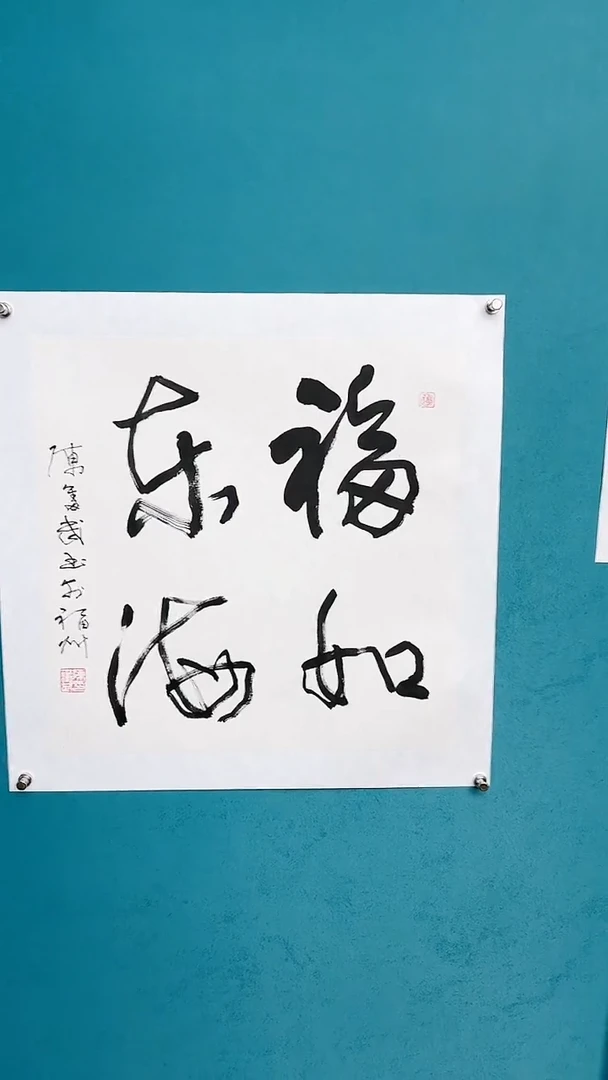 福如
东海
陈
书于福州